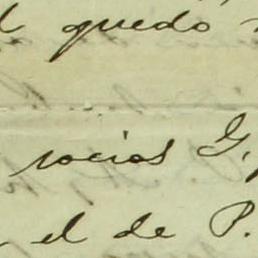 quedo
socios G.
el de P.